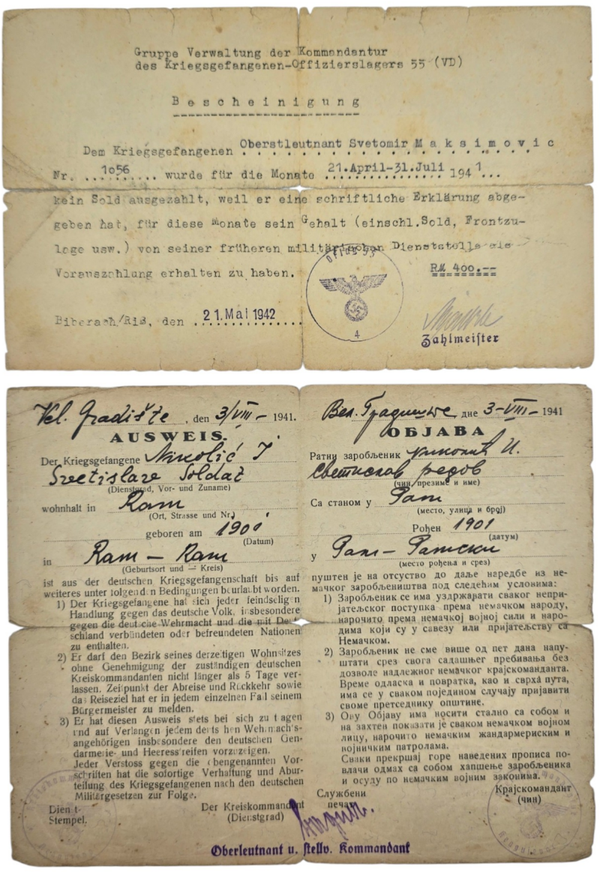 Gruppe Verwaltung der Kommandantur
des Kriegsgefangenen-Offizierslagers 55 (VD)
Bescheinigung
Dem Kriegsgefangenen Oberstleutnant Svetomir Maksimovic
Nr. 1o56 wurde für die Monate 21.April-31.Juli 1941.
kein Sold ausgezahlt, weil er eine schriftliche Erklärung abge-
geben hat, für diese Monate sein Gehalt (einschl.Sold, Frontzu-
lage usw.) von seiner früheren militärischen Dienststelle als
Vorauszahlung erhalten zu haben. RM 400.--
Biberach/Riß, den 21. Mai 1942
Zahlmeister
4
Vel. Gradište, den 3/VIII- 1941.
AUSWEIS.
Der Kriegsgefangene Nikolić J
Soldat
(Dienstgrad, Vor- und Zuname)
wohnhaft in Ram
(Ort, Strasse und Nr.)
geboren am
(Datum)
in Ram - Ram
(Geburtsort und - Kreis)
ist aus der deutschen Kriegsgefangenschaft bis auf
weiteres unter folgenden Bedingungen beurlaubt worden.
1) Der Kriegsgefangene hat sich jeder feindseligen
Handlung gegen das deutsche Volk, insbesondere
gegen die deutsche Wehrmacht und die mit Deut-
schland verbündeten oder befreundeten Nationen
zu enthalten.
2) Er darf den Bezirk seines derzeitigen Wohnsitzes
ohne Genehmigung der zuständigen deutschen
Kreiskommandanten nicht länger als 5 Tage ver-
lassen. Zeitpunkt der Abreise und Rückkehr sowie
das Reiseziel hat er in jedem einzelnen Fall seinem
Bürgermeister zu melden.
3) Er hat diesen Ausweis stets bei sich zu tragen
und auf Verlangen jedem deutschen Wehrmachts-
angehörigen insbesondre den deutschen Gen-
darmerie- und Heeresstreifen vorzuzeigen.
Jeder Verstoss gegen die obengenannten Vor-
schriften hat die sofortige Verhaftung und Abur-
teilung des Kriegsgefangenen nach den deutschen
Militärgesetzen zur Folge.
Dienst Der Kreiskommandant
Stempel. (Dienstgrad)
Вел. Градиште дне 3-VIII- 1941
ОБЈАВА
Ратни заробљеник
редов
(чин, презиме и име)
Са станом у Рам
(место, улица и број)
Рођен 1901
(датум)
у Рам-Рамски
(место рођења и срез)
пуштен је на отсуство до даље наредбе из не-
мачког заробљеништва под следећим условима:
1) Заробљеник се има уздржарати сваког непри-
јатељског поступка према немачком народу,
нарочито према немачкој војној сили и наро-
дима који су у савезу или пријатељству са
Немачком.
2) Заробљеник не сме више од пет дана напу-
штати срез свога садашњег пребивања без
дозволе издлежног немачког крајскоманданта.
Време одласка и повратка, као и сврха пута,
има се у сваком поједином случају пријавити
своме претседнику општине.
3) Ову Објаву има носити стално са собом и
на захтев показати је сваком немачком војном
лицу, нарочито немачким жандармериским и
војничким патролама.
Сваки прекршај горе наведених прописа по-
влачи одмах са собом хапшење заробљеника
и осуду по немачким војним законима.
Службени Крајскомандант
печат (чин)
Oberleutnant u. stellv. Kommandant